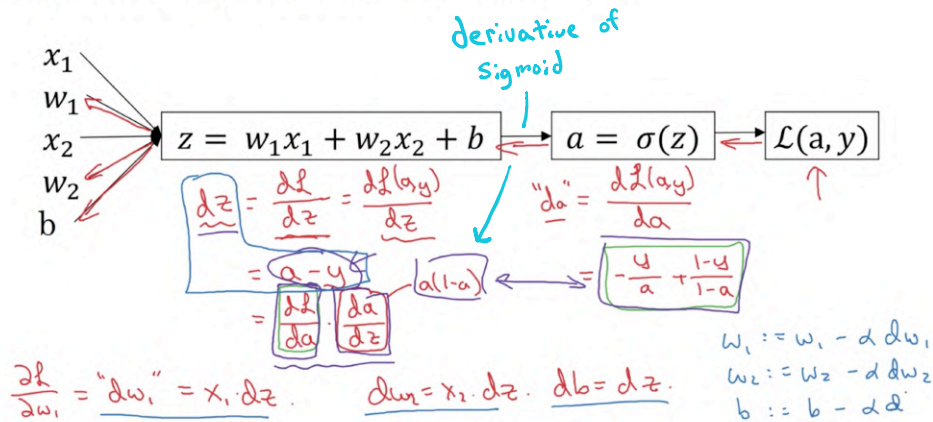 derivative of
sigmoid
x₁
w₁
x₂
w₂
b
z = w₁x₁ + w₂x₂ + b
a = σ(z)
ℒ(a, y)
dz = dℒ/dz = dℒ(a,y)/dz
"da" = dℒ(a,y)/da
= a - y
a(1-a)
= -y/a + (1-y)/(1-a)
= dℒ/da · da/dz
∂ℒ/∂w₁ = "dw₁" = x₁·dz.
dw₂ = x₂·dz.
db = dz.
w₁ := w₁ - α dw₁
w₂ := w₂ - α dw₂
b := b - α d